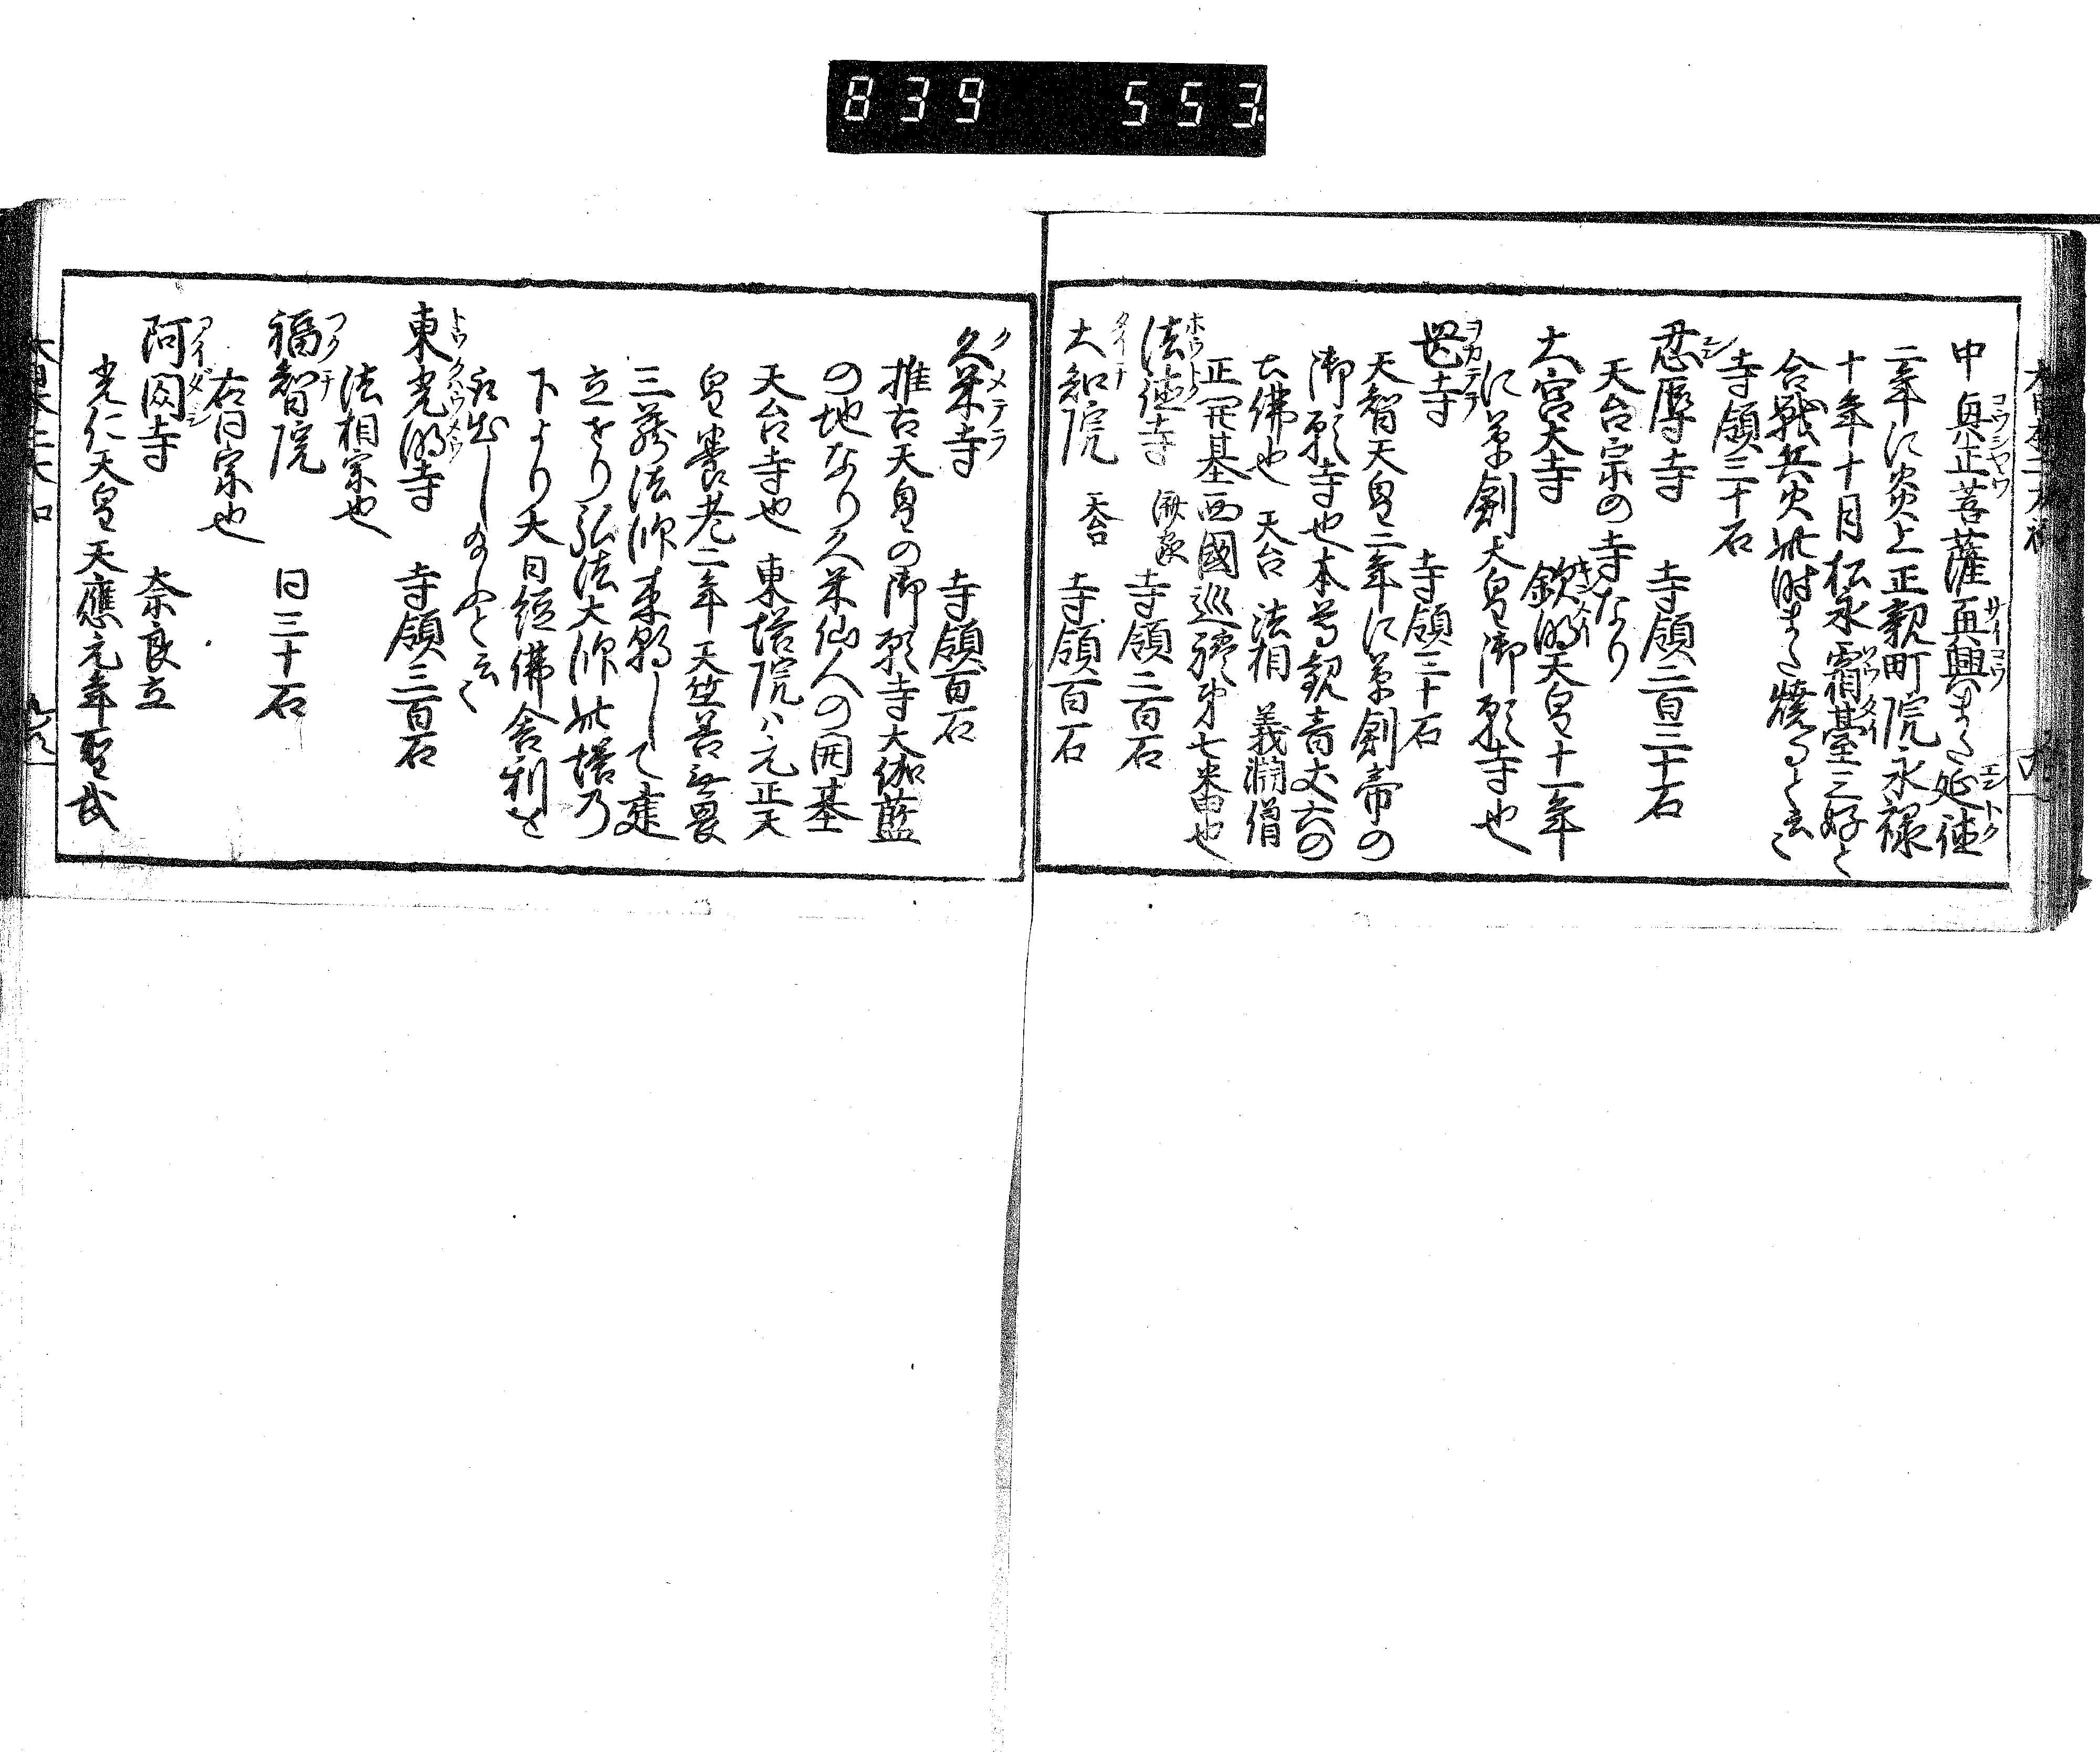 839 553
中興正菩薩再興また延徳
二年に炎上正親町院永禄
十年十月松永霜臺三好と
合戦兵火此時また焼るといふ
寺領三十石
忍辱寺 寺領二百三十石
天台宗の寺なり
大宮大寺 欽明天皇十一年
に草創天皇御願寺也
岡寺 寺領三十石
天智天皇二年に草創帝の
御願寺也本尊観音丈六の
大佛也 天台 法相 義淵僧
正開基西國巡礼第七番也
法徳寺 寺領二百石
大知院 天台 寺領百石
久米寺 寺領百石
推古天皇の御願寺大伽藍
の地なり久米仙人の開基
天台寺也 東塔院ハ元正天
皇養老二年天竺善無畏
三蔵法師来朝して建
立せり弘法大師此塔乃
下より大日経佛舎利を
取出し給ふと云〻
東光明寺 寺領三百石
法相宗也
福智院 同三十石
右同宗也
阿閦寺 奈良立
光仁天皇天應元年聖武